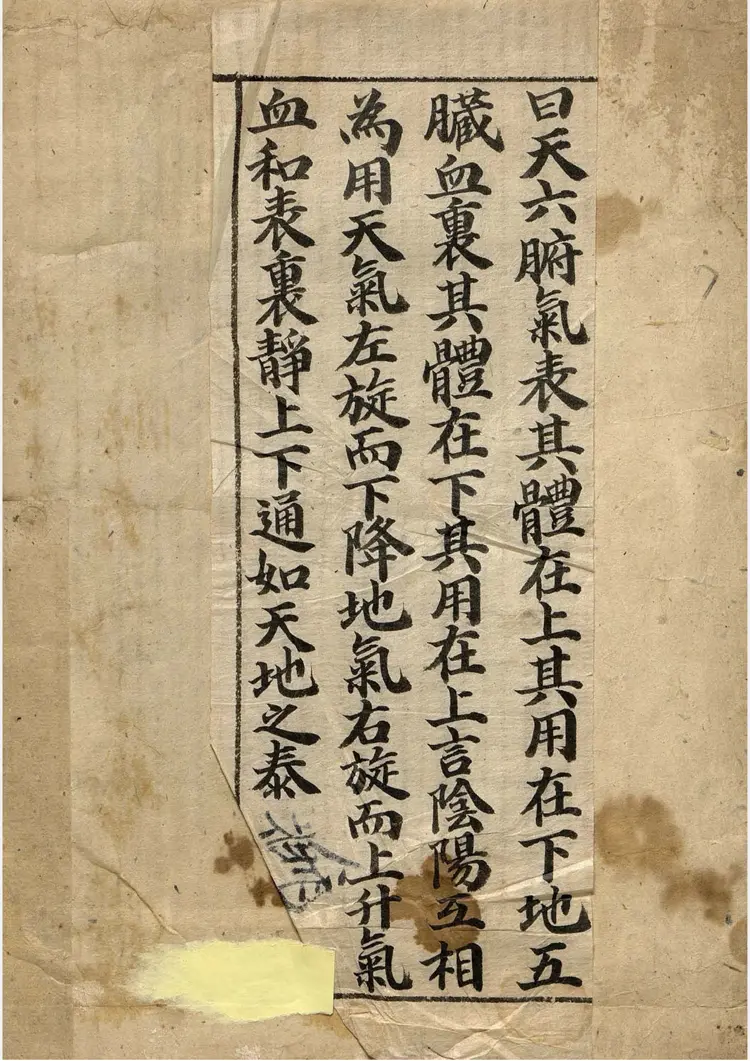 曰天六腑氣表其體在上其用在下地五
臟血裏其體在下其用在上言陰陽互相
為用天氣左旋而下降地氣右旋而上升氣
血和表裏靜上下通如天地之泰